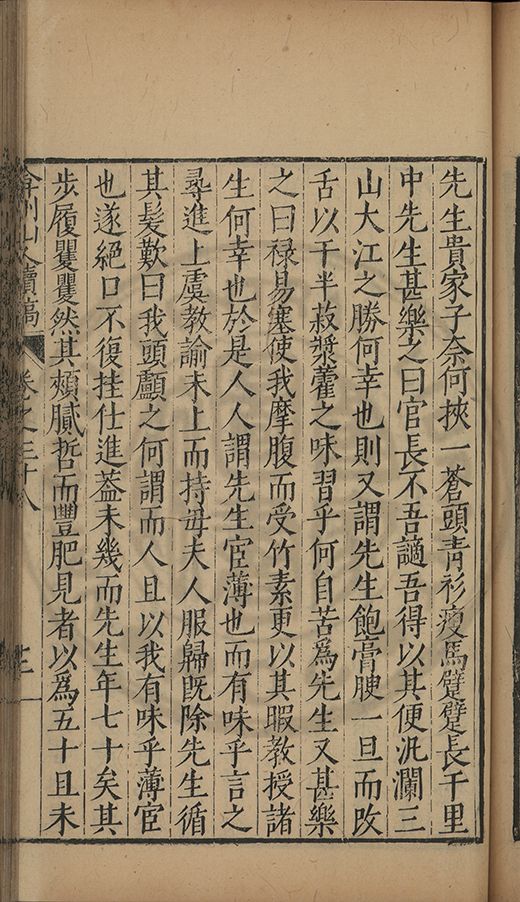 先生貴家子奈何挾一蒼頭青衫瘦馬蹩躄長千里
中先生甚樂之曰官長不吾讁吾得以其便汎瀾三
山大江之勝何幸也則又謂先生飽膏腴一旦而改
舌以干半菽漿藿之味習乎何自苦爲先生又甚樂
之曰祿易塞使我摩腹而受竹素更以其暇教授諸
生何幸也於是人人謂先生宦薄也而有味乎言之
尋進上虞教諭未上而持毋夫人服歸旣除先生循
其髮歎曰我頭顱之何謂而人且以我有味乎薄宦
也遂絕口不復挂仕進葢未幾而先生年七十矣其
步履矍矍然其頰膩晳而豐肥見者以爲五十且未
弇州山人續稿
卷之三十八